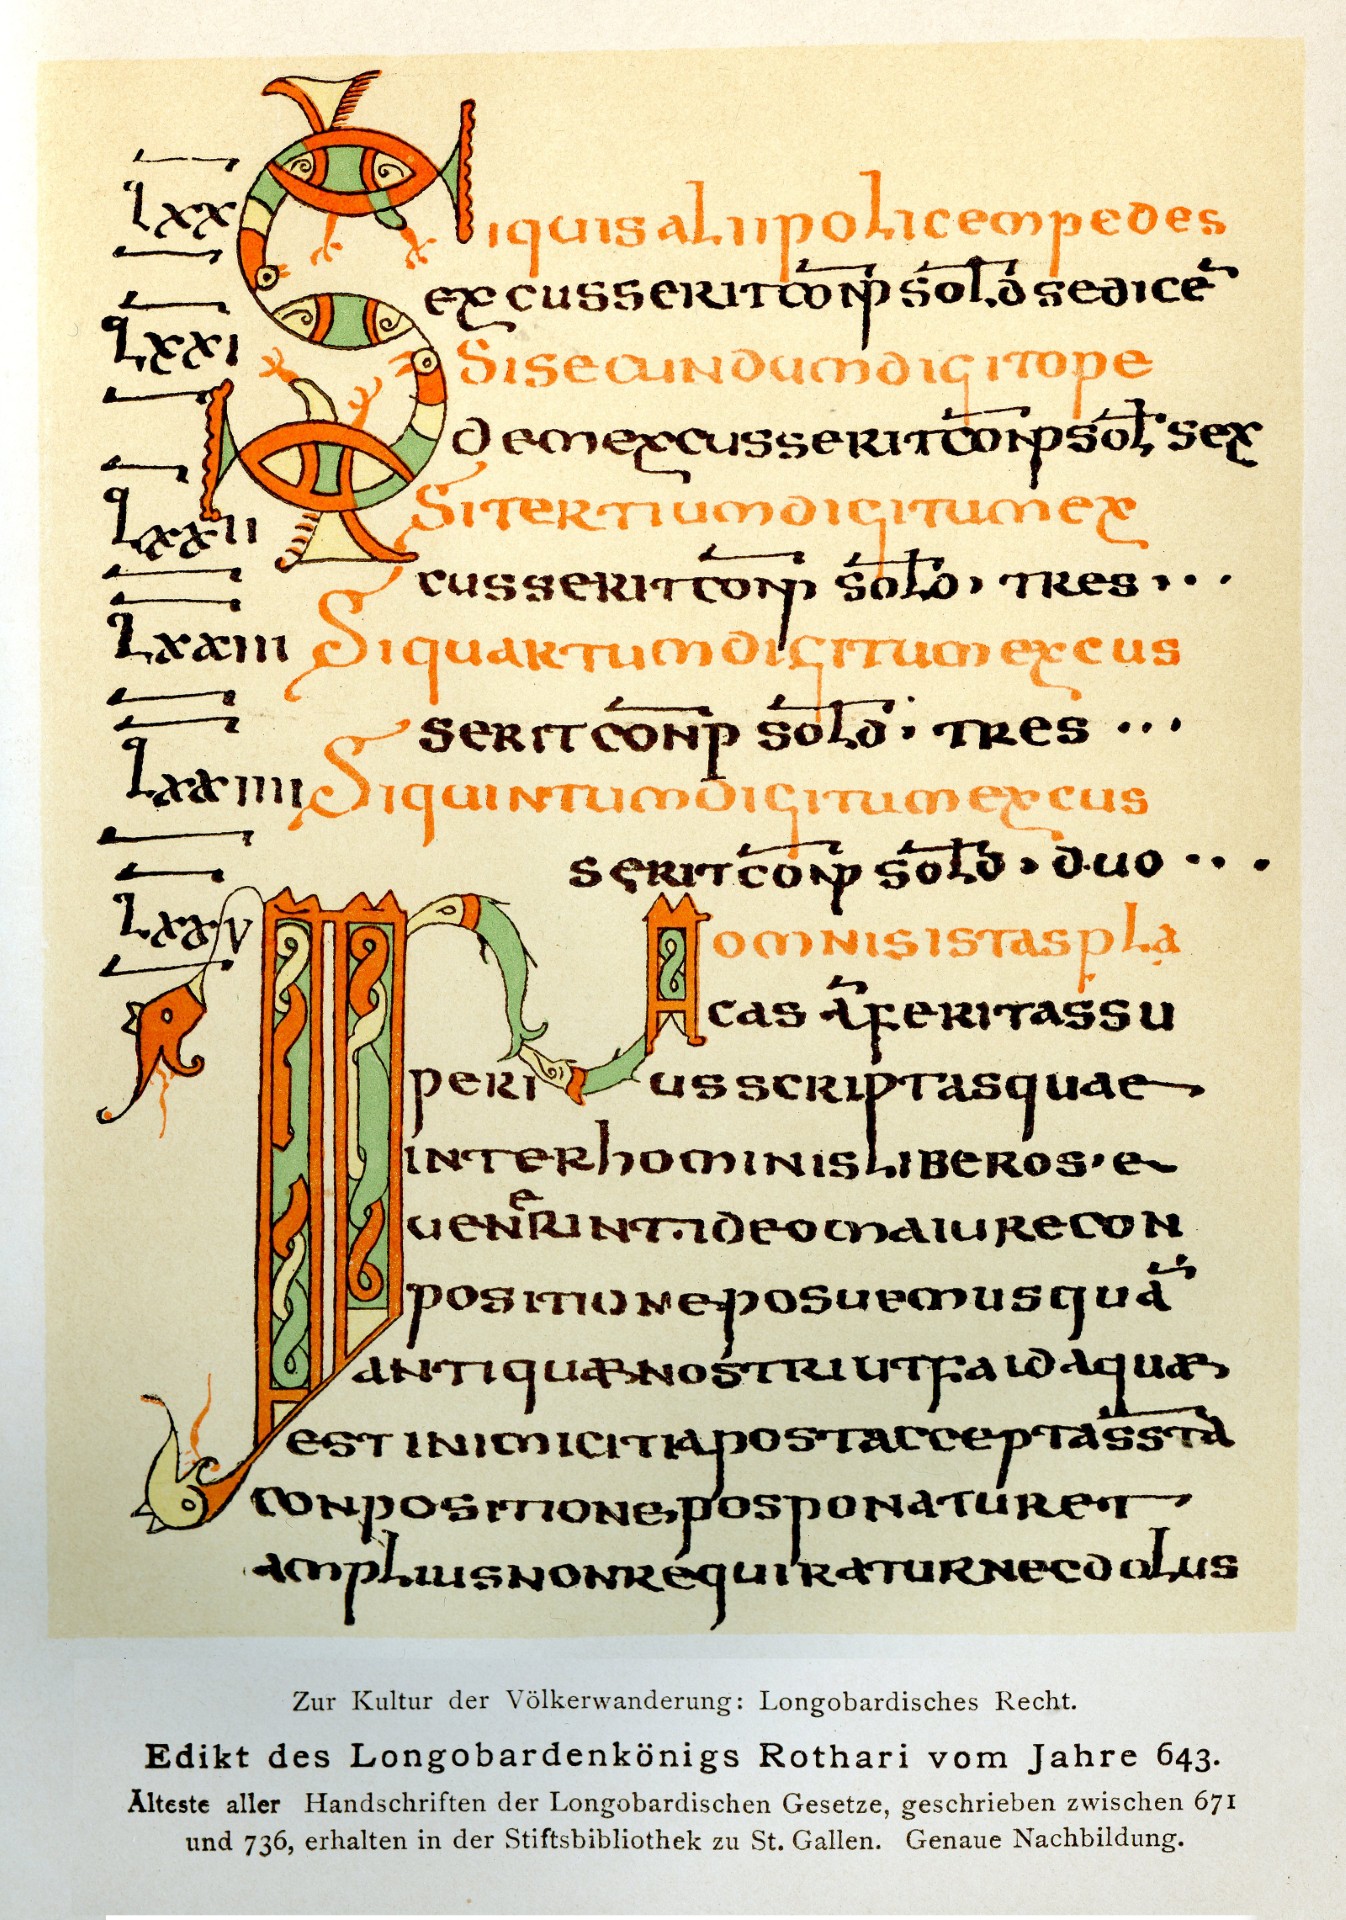 LXX Siquisaliipolicempedes
excusseritconp sold sedice
LXXI Sisecundumdigitope
demexcusseritconpsol sex
LXXII Sitertiumdigitumex
cusseritconp sold, tres, · · ·
LXXIII Siquartumdigitumexcus
seritconp sold · tres · · ·
LXXIIII Siquintumdigitumexcus
seritconp sold , duo · · ·
LXXV In omnisistaspla
cas a feritassu
perius scriptasquae
interhominisliberos·e
uenerint·ideomaiurecon
positioneposuemusqua
antiquaenostriutfaidaquae
estinimicitiapostacceptassta
conpositioneposponaturet
ampliusnonrequiraturnecdolus
Zur Kultur der Völkerwanderung: Longobardisches Recht.
Edikt des Longobardenkönigs Rothari vom Jahre 643.
Älteste aller Handschriften der Longobardischen Gesetze, geschrieben zwischen 671
und 736, erhalten in der Stiftsbibliothek zu St. Gallen. Genaue Nachbildung.